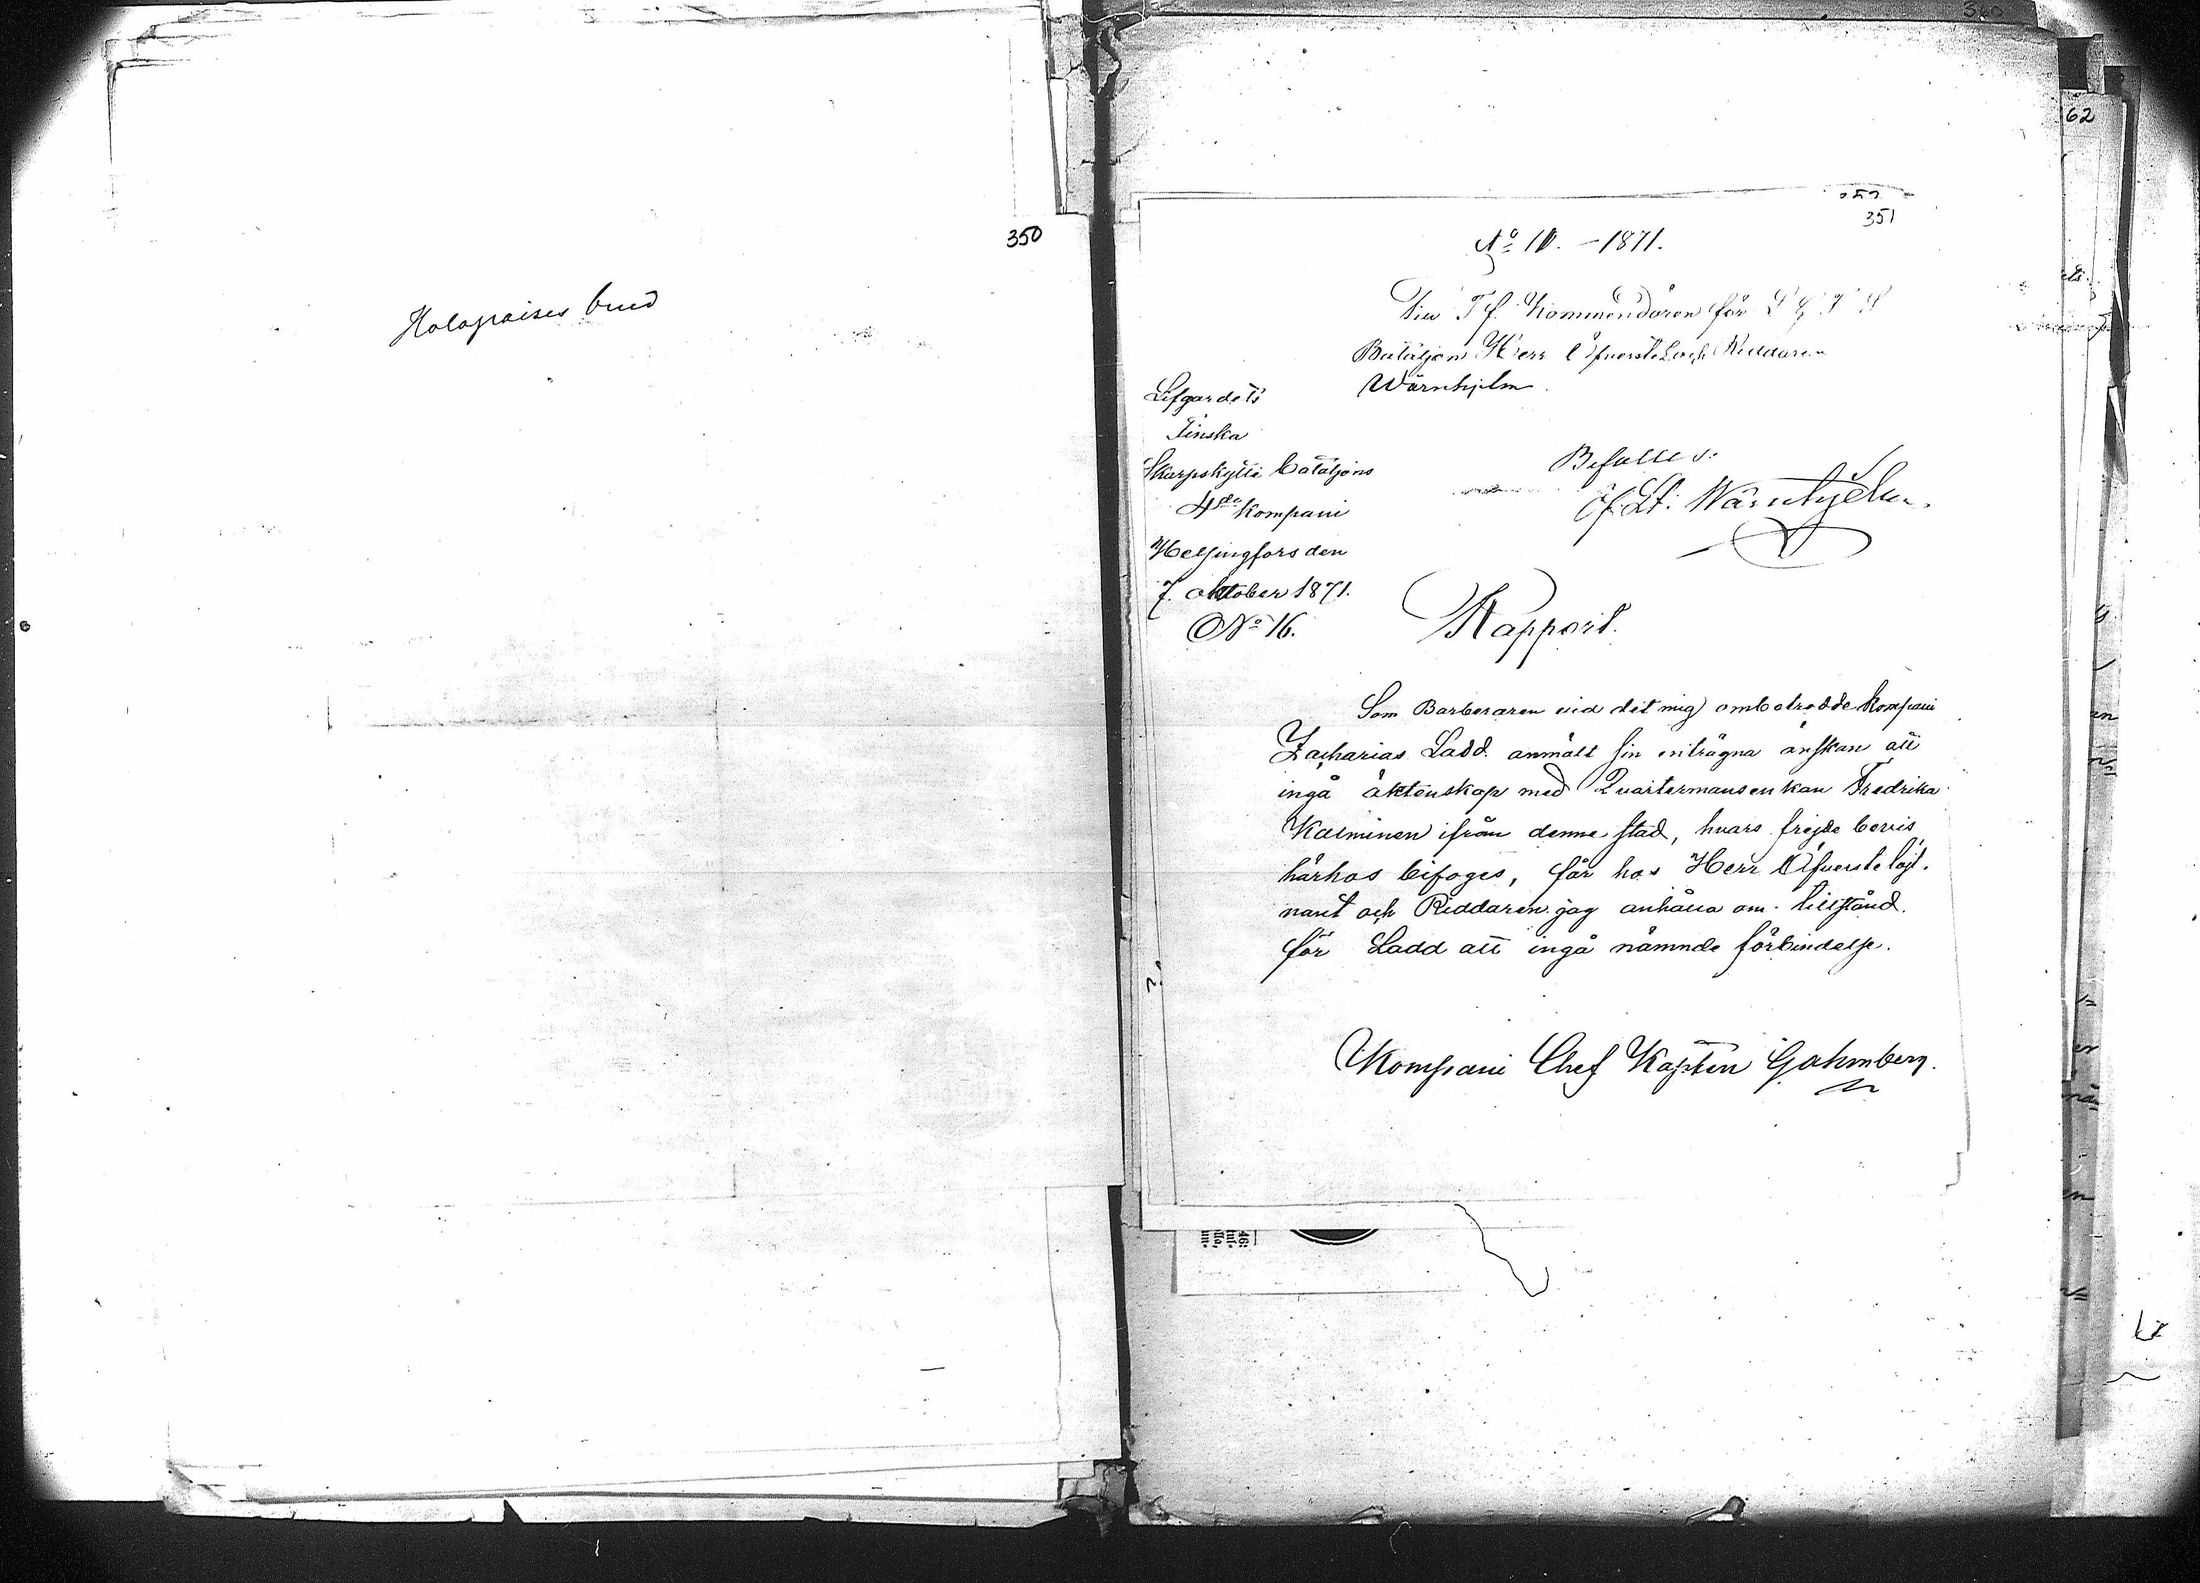 350
Holopaises brud
351
No 10. – 1871.
Till T. f. Kommendören för L. G. F. S.
Bataljon Herr Öfverstelöjt. Riddaren
Wärnhjelm
Lifgardets
Finska
Skarpskytte bataljons
4de Kompani
Helsingfors den
7. oktober 1871.
No 16.
Befalles:
Öf. Lt. Wärnhjelm.
Rapport.
Som Barberaren vid det mig ombetrodde Kompani
Zacharias Ladd anmält sin enträgna önskan att
ingå äktenskap med Qvartermansenkan Fredrika
Kalminen ifrån denne stad, hvars frejde bevis
härhos bifoges, får hos Herr Öfverstelöjt.
nant och Riddaren jag anhålla om tillstånd
för Ladd att ingå nämnde förbindelse.
Kompani Chef Kapten Gahmberg.
62